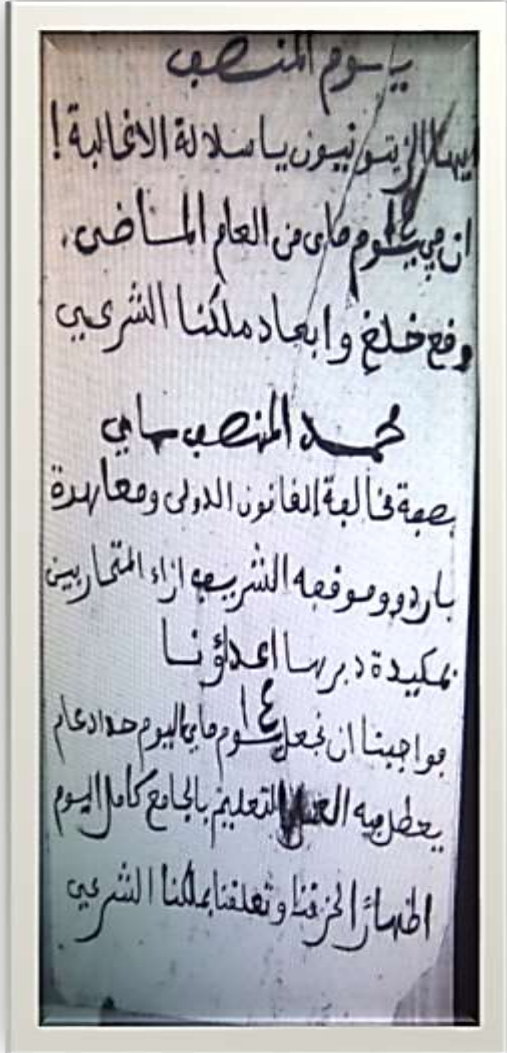 يوم المنصف
ايها الزيتونيون يا سلالة الاغالبة !
ان في يوم ١٤ ماي من العام الماضي،
وقع خلع وابعاد ملكنا الشرعي
محمد المنصف باي
بصفة مخالفة القانون الدولي ومعاهدة
باردو وموقفه الشريف ازاء المتحاربين
بمكيدة دبرها اعداؤنا
فواجبنا ان نجعل يوم ١٤ ماي اليوم حداد عام
يعطل فيه التعليم بالجامع كامل اليوم
اظهارًا لحزننا وتعلقنا بملكنا الشرعي